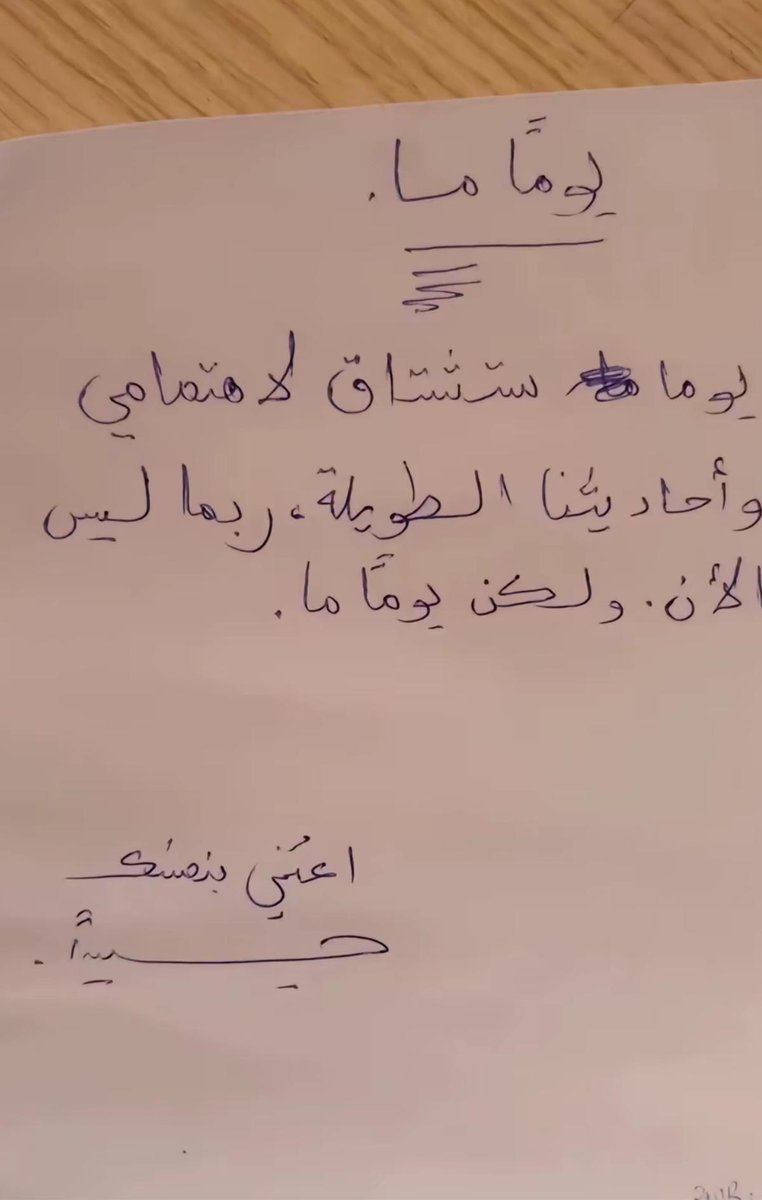 يومًا ما.
يوما ستشتاق لاهتمامي
وأحاديثنا الطويلة، ربما ليس
الأن. ولكن يومًا ما.
اعتني بنفسك
حبيبيًا.